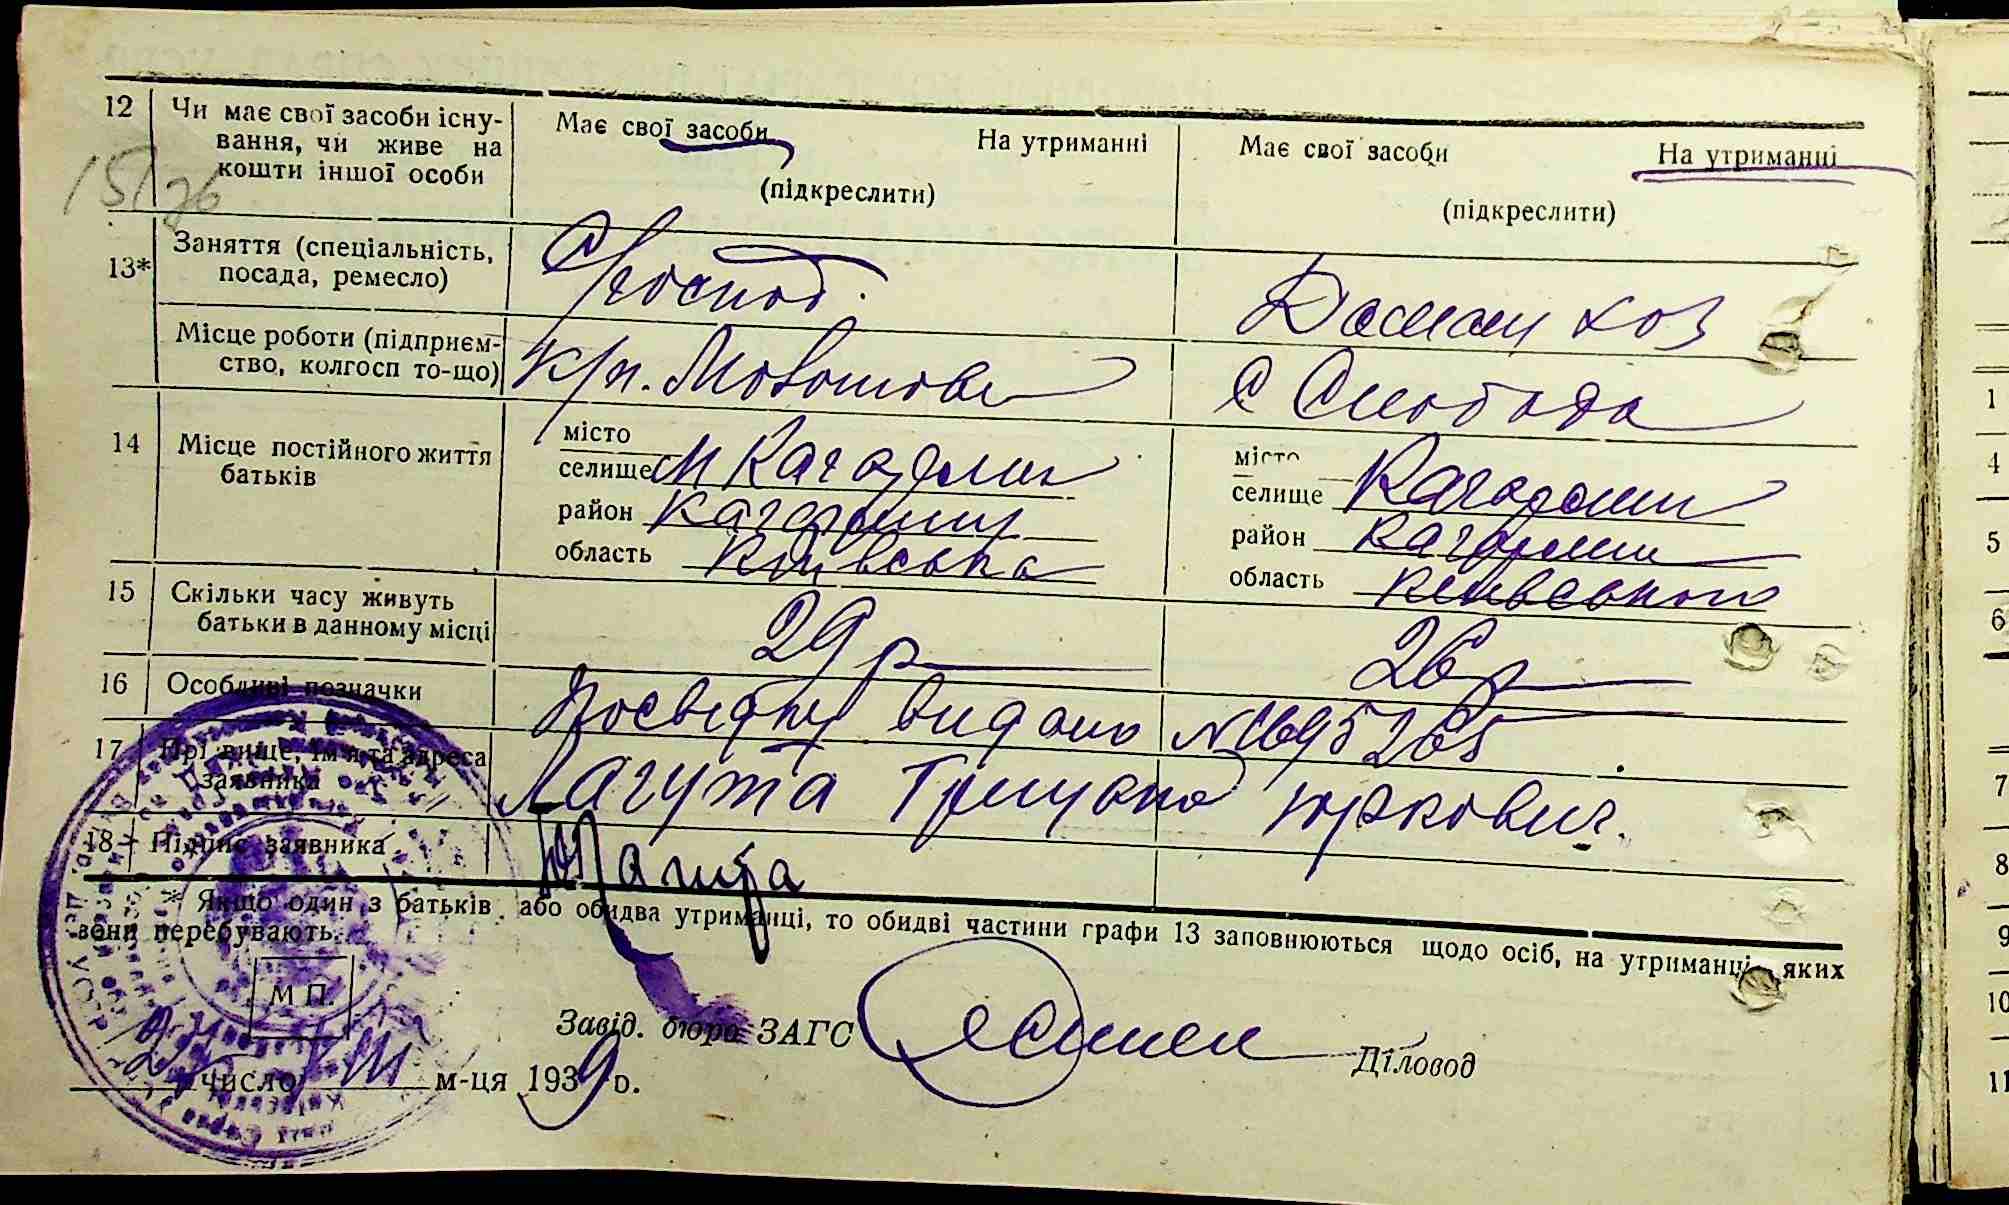 12 Чи має свої засоби існу-
вання, чи живе на
кошти іншої особи
Має свої засоби На утриманні
(підкреслити)
Має свої засоби На утриманці
(підкреслити)
13* Заняття (спеціальність,
посада, ремесло)
Домаш хоз
Місце роботи (підприєм-
ство, колгосп то-що)
с Слобода
14 Місце постійного життя
батьків
місто
селище м Кагарлик
район Кагарлицьк
область Київська
місто
селище Кагарлик
район Кагарлик
область Київського
15 Скільки часу живуть
батьки в данному місці
29 р
26 р
16 Особливі позначки
Посвідку видано № 1695265
17 Прізвище, ім'я та адреса
заявника
Лагута Юркович.
18 Підпис заявника
Лагута
* Якщо один з батьків або обидва утриманці, то обидві частини графи 13 заповнюються щодо осіб, на утриманці яких
вони перебувають.
М П.
Завід. бюро ЗАГС
Діловод
число VIII м-ця 1939 р.